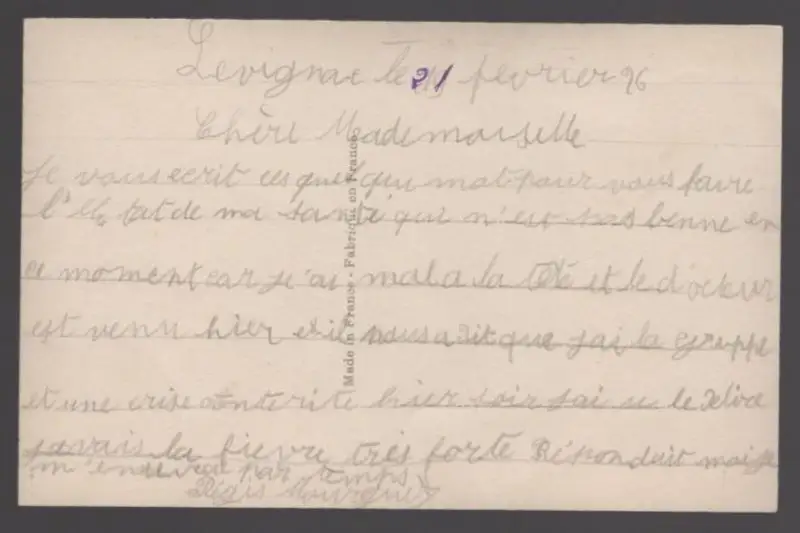 Levignac le 21 fevrier 26
Chère Mademoiselle
Je vous ecrit ces quel qui mot pour vous faire
l'Etat de ma santé qui n'est pas benne en
ce moment car je'ai mal a la tété et le d'octeur
est venu hier et il nous a dit que j'ai la greppe
et une crise enterite hier soir j'ai u le delire
javais la fievre très forte
m' par temps
Régis
Made in France - Fabriqué en France